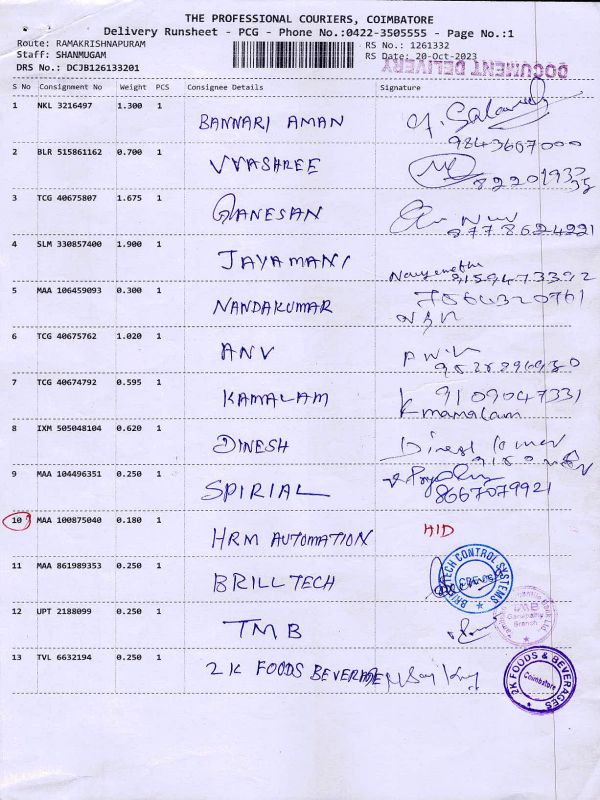 THE PROFESSIONAL COURIERS, COIMBATORE
Delivery Runsheet - PCG - Phone No.:0422-3505555 - Page No.:1
Route: RAMAKRISHNAPURAM
Staff: SHANMUGAM
DRS No.: DCJB126133201
RS No.: 1261332
RS Date: 20-Oct-2023
DOCUMENT DELIVERY
S No Consignment No Weight PCS Consignee Details Signature
1 NKL 3216497 1.300 1 BANNARI AMAN
9843607000
2 BLR 515861162 0.700 1 VVASHREE
3 TCG 40675807 1.675 1 GANESAN
9778624221
4 SLM 330857400 1.900 1 JAYAMANI
9159473392
5 MAA 106459093 0.300 1 NANDAKUMAR
6 TCG 40675762 1.020 1 ANV
7 TCG 40674792 0.595 1 KAMALAM 9109047331
Kmamalam
8 IXM 505048104 0.620 1 DINESH Dinesh Kumar
9 MAA 104496351 0.250 1 SPIRIAL
8667079921
10 MAA 100875040 0.180 1 HRM AUTOMATION HID
11 MAA 861989353 0.250 1 BRILLTECH
BRILLTECH CONTROL SYSTEMS
CBE
12 UPT 2188099 0.250 1 TMB
TMB
Ganapathy
Branch
13 TVL 6632194 0.250 1 2K FOODS BEVERAGE
2K FOODS & BEVERAGES
Coimbatore